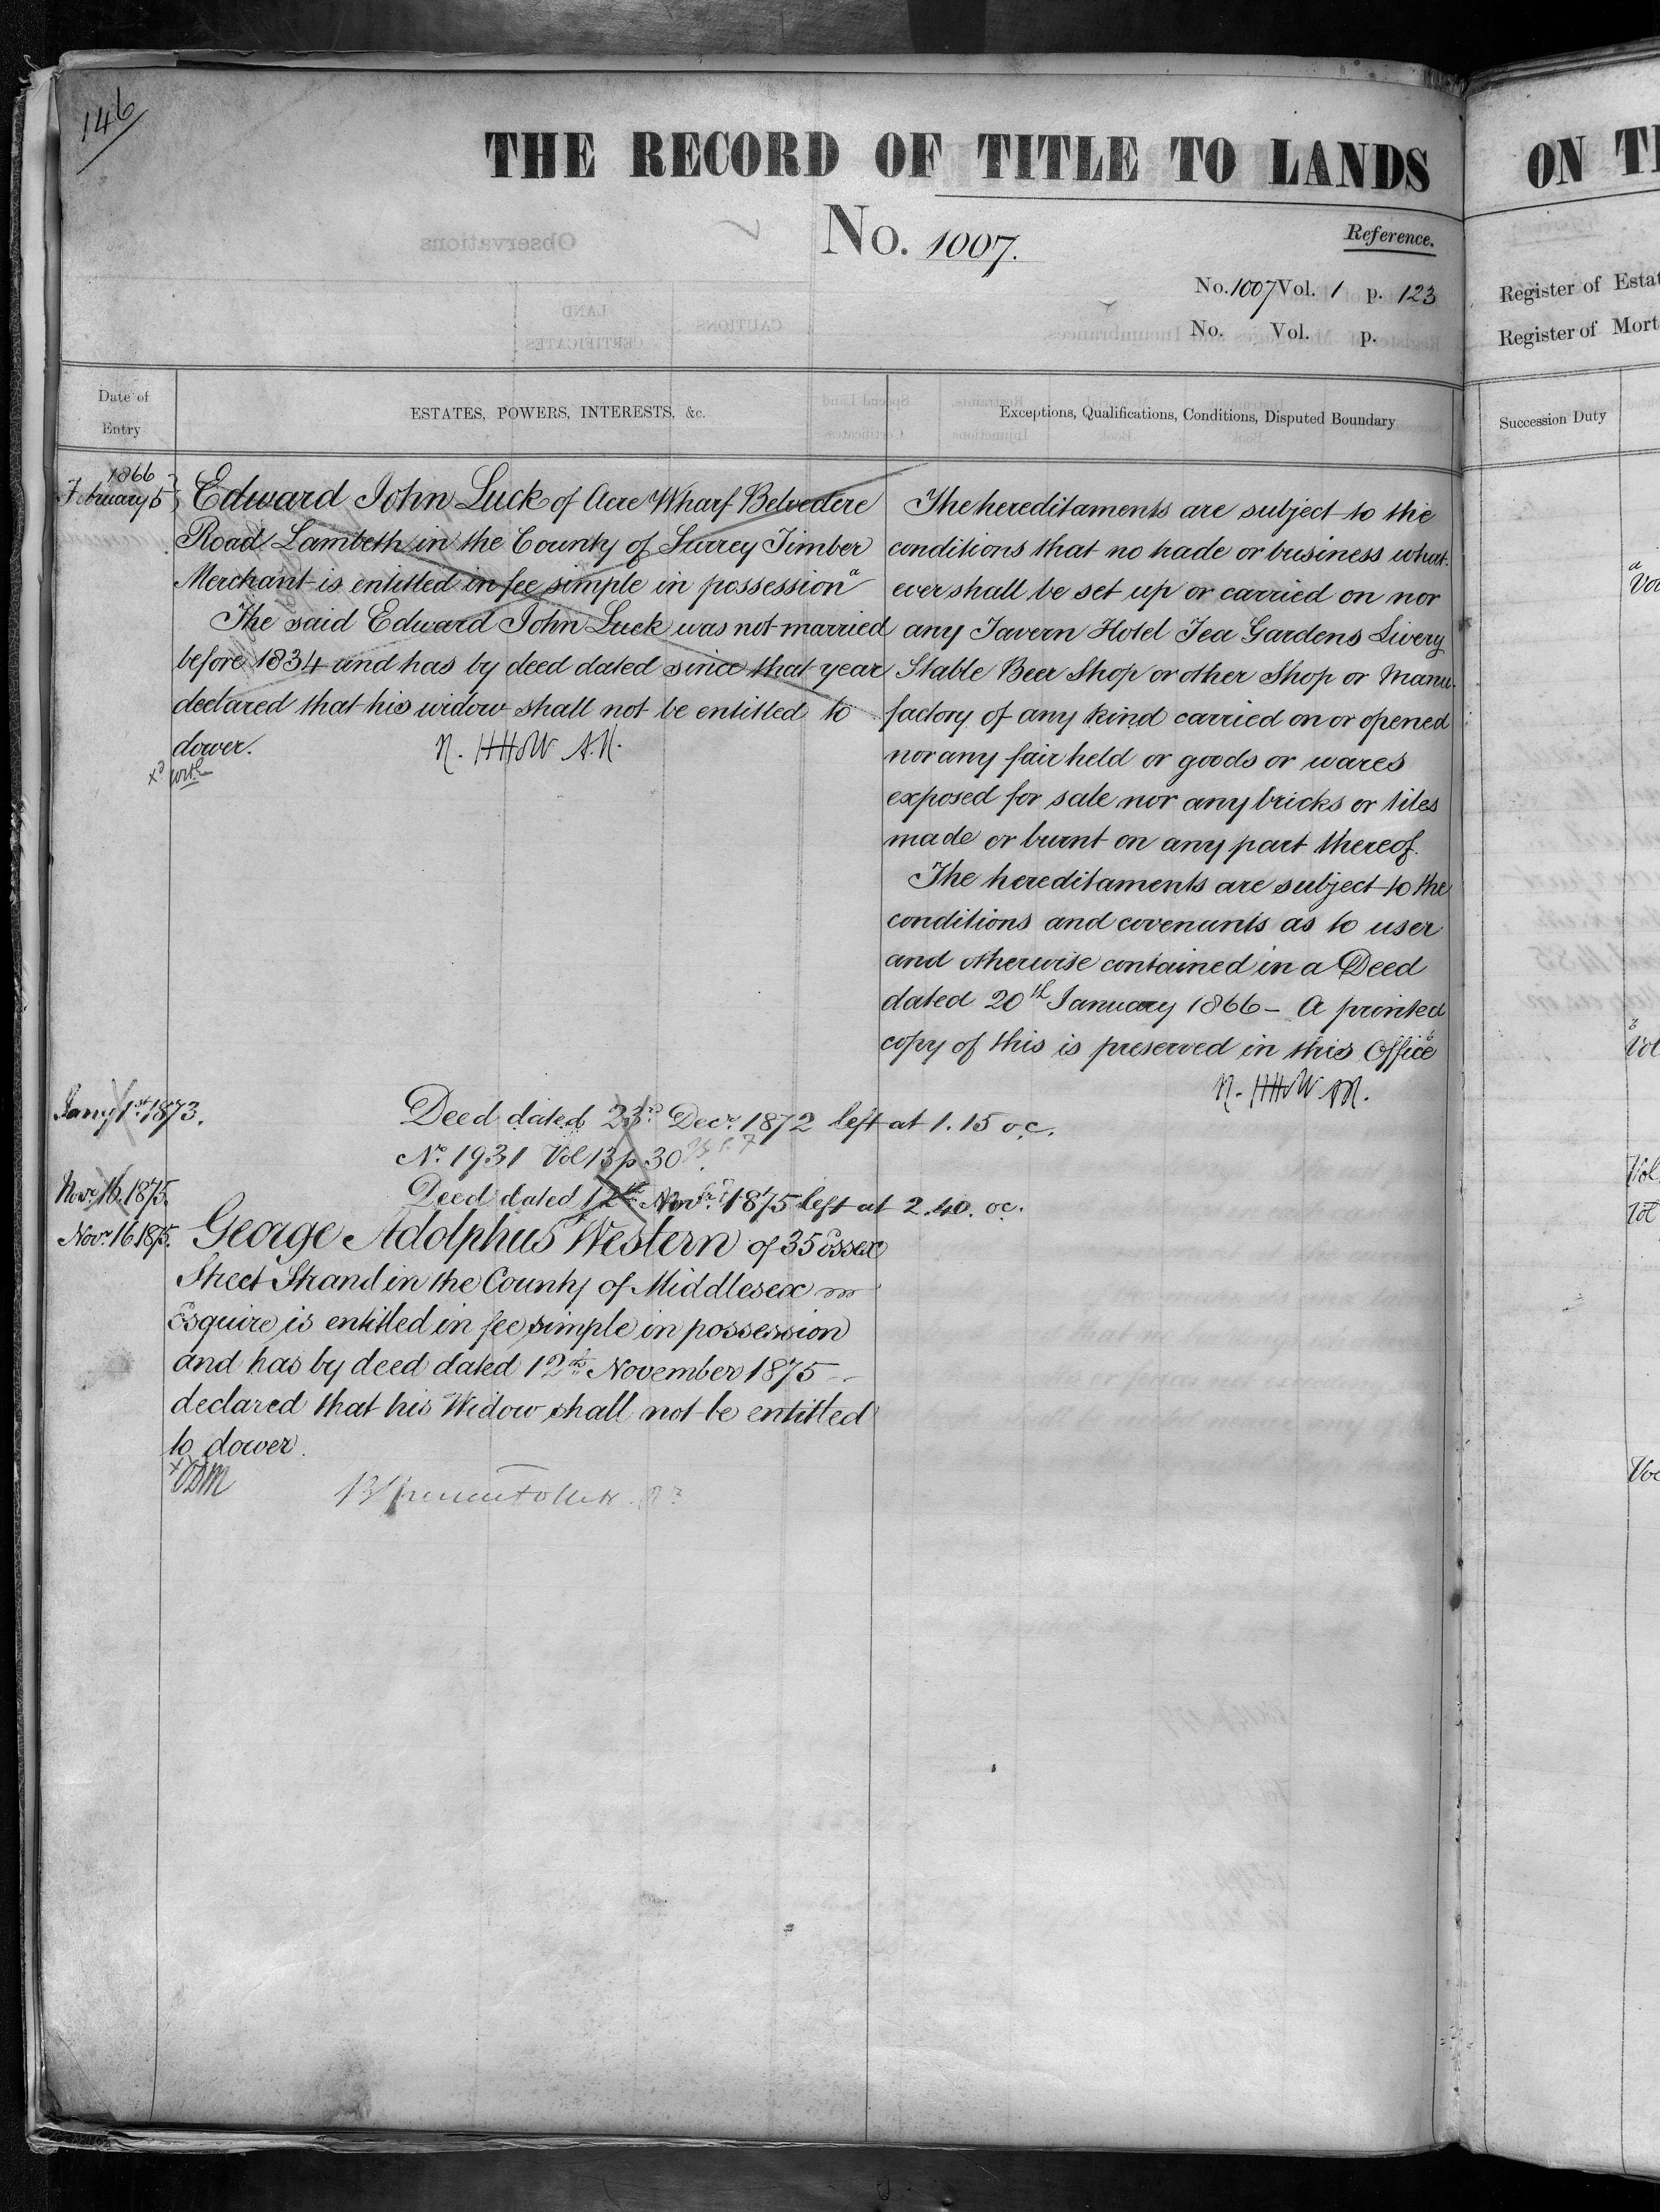 146
THE RECORD OF TITLE TO LANDS
No. 1007.
Reference.
No. 1007 Vol. 1 p. 123
No. Vol. p.
Date of Entry
ESTATES, POWERS, INTERESTS, &c.
Exceptions, Qualifications, Conditions, Disputed Boundary
1866
February 5
Edward John Luck of Acre Wharf Belvedere
Road Lambeth in the County of Surrey Timber
Merchant is entitled in fee simple in possession a
The said Edward John Luck was not married
before 1834 and has by deed dated since that year
declared that his widow shall not be entitled to
dower.
The hereditaments are subject to the
conditions that no trade or business what-
ever shall be set up or carried on nor
any Tavern Hotel Tea Gardens Livery
Stable Beer Shop or other Shop or Manu-
factory of any kind carried on or opened
nor any fair held or goods or wares
exposed for sale nor any bricks or tiles
made or burnt on any part thereof.
The hereditaments are subject to the
conditions and covenants as to user
and otherwise contained in a Deed
dated 20th January 1866 - A printed
copy of this is preserved in this Office
Jany 1st 1873.
Deed dated 23rd Decr. 1872 left at 1.15 oc.
No. 1931 Vol 13 p 30
Novr. 16. 1875.
Deed dated 12th Novr. 1875 left at 2.40. oc.
Novr. 16 1875.
George Adolphus Western of 35 Essex
Street Strand in the County of Middlesex
Esquire is entitled in fee simple in possession
and has by deed dated 12th November 1875
declared that his Widow shall not be entitled
to dower.
ON
Register of
Register of
Succession Duty